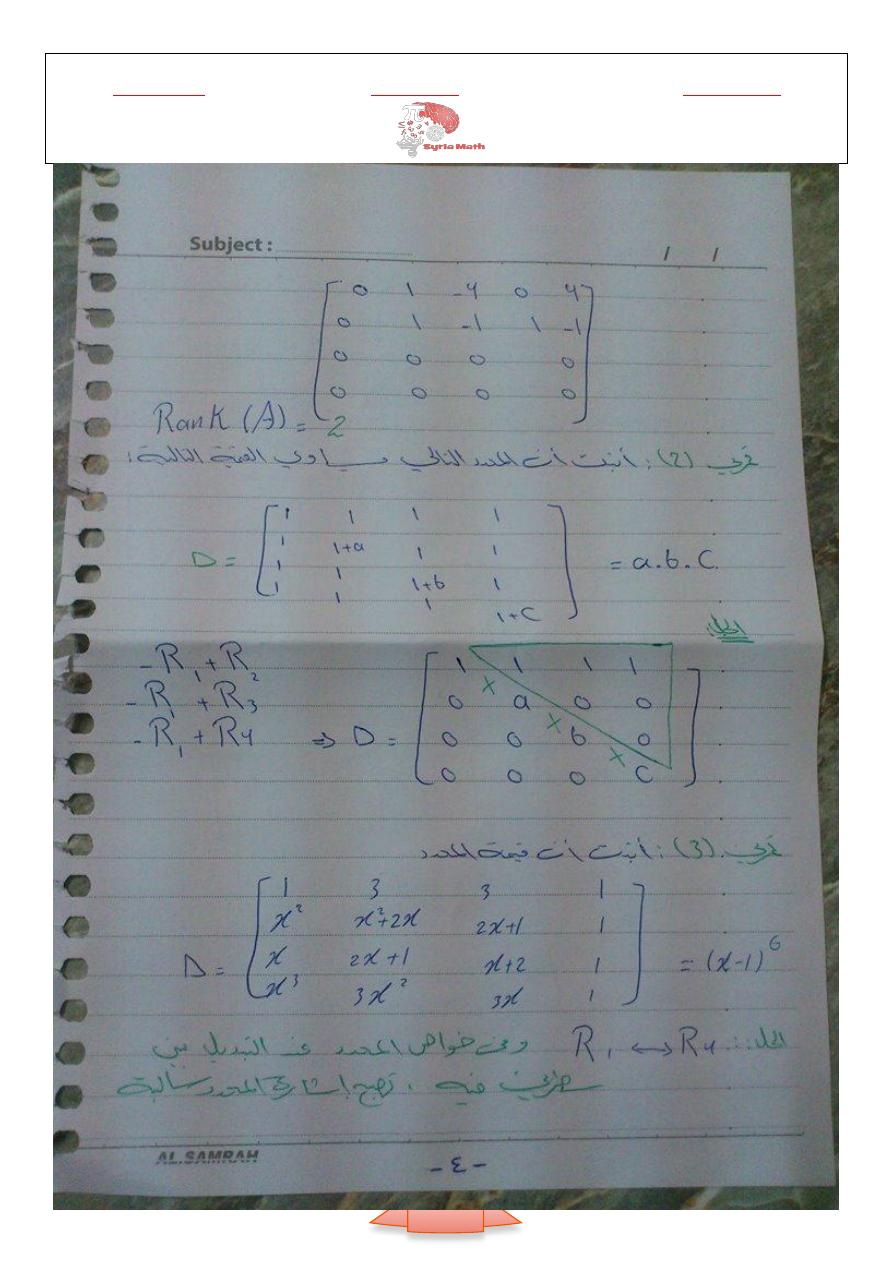 Syria Math
Subject :
/ /
0 1 -4 0 4
0 1 -1 1 -1
0 0 0 0
0 0 0 0
Rank (A) = 2
تمرين (2): أثبت أن المحدد التالي يساوي القيمة التالية:
1 1 1 1
1 1+a 1 1
D = = a.b.C.
1 1 1+b 1
1 1 1 1+C
الحل:
-R1 + R2
-R1 + R3
-R1 + R4 ⇒ D =
1 1 1 1
0 a 0 0
0 0 b 0
0 0 0 C
تمرين (3): أثبت أن قيمة المحدد
1 3 3 1
x² x²+2x 2x+1 1
D = x 2x+1 x+2 1 = (x-1)⁶
x³ 3x² 3x 1
الحل: R1 ↔ R4 ومن خواص المحدد عند التبديل بين
سطرين فيه، تصبح إشارة المحدد سالبة
AL.SAMRAH
- ٤ -